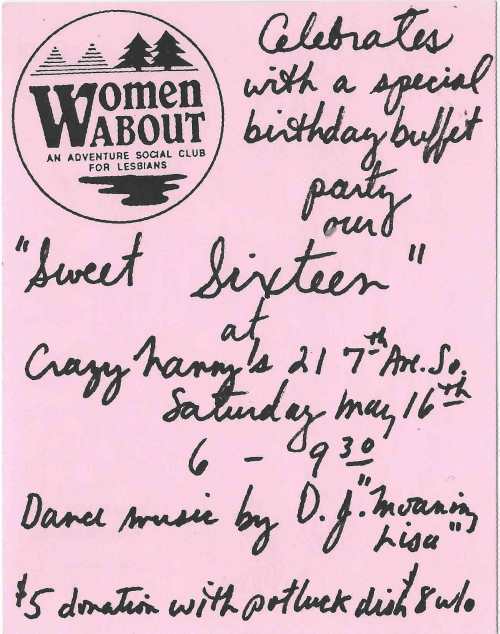 Women
ABOUT
AN ADVENTURE SOCIAL CLUB
FOR LESBIANS
Celebrates
with a special
birthday buffet
party
our
"Sweet Sixteen"
at
Crazy Nanny's 21 7th Ave. So.
Saturday May 16th
6 - 9 30
Dance music by D.J. "Moaning
Lisa"
$5 donation with potluck dish $8 w/o